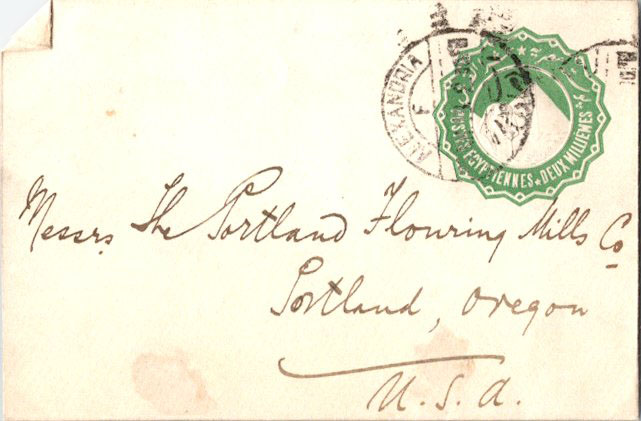 ALEXANDRIA
F
POSTES EGYPTIENNES ★ DEUX MILLIEMES ★
Messrs The Portland Flouring Mills Co
Portland, Oregon
U. S. A.